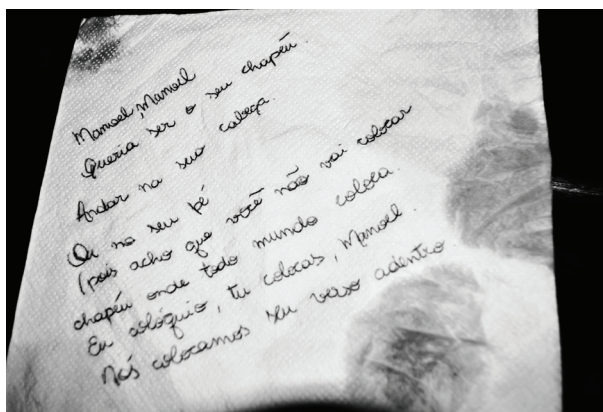 Manoel, Manoel
Queria ser o seu chapéu.
Andar na sua cabeça.
Ou no seu pé
(pois acho que você não vai colocar
chapéu onde todo mundo coloca.
Eu colóquio, tu colocas, Manoel.
Nós colocamos seu verso adentro